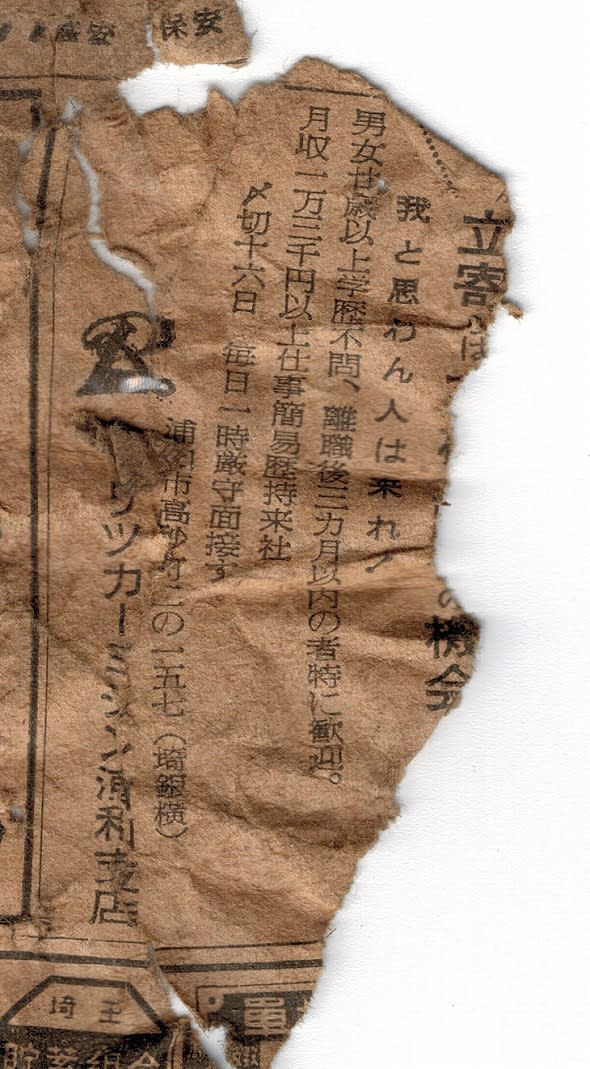 保安
立寄
の機会
我と思わん人は来れ！
男女廿歳以上学歴不問、離職後三カ月以内の者特に歓迎。
月収一万三千円以上仕事簡易歴持来社
〆切十六日 毎日一時厳守面接す
浦和市高砂町二の一五七（埼銀横）
リッカーミシン浦和支店
埼玉